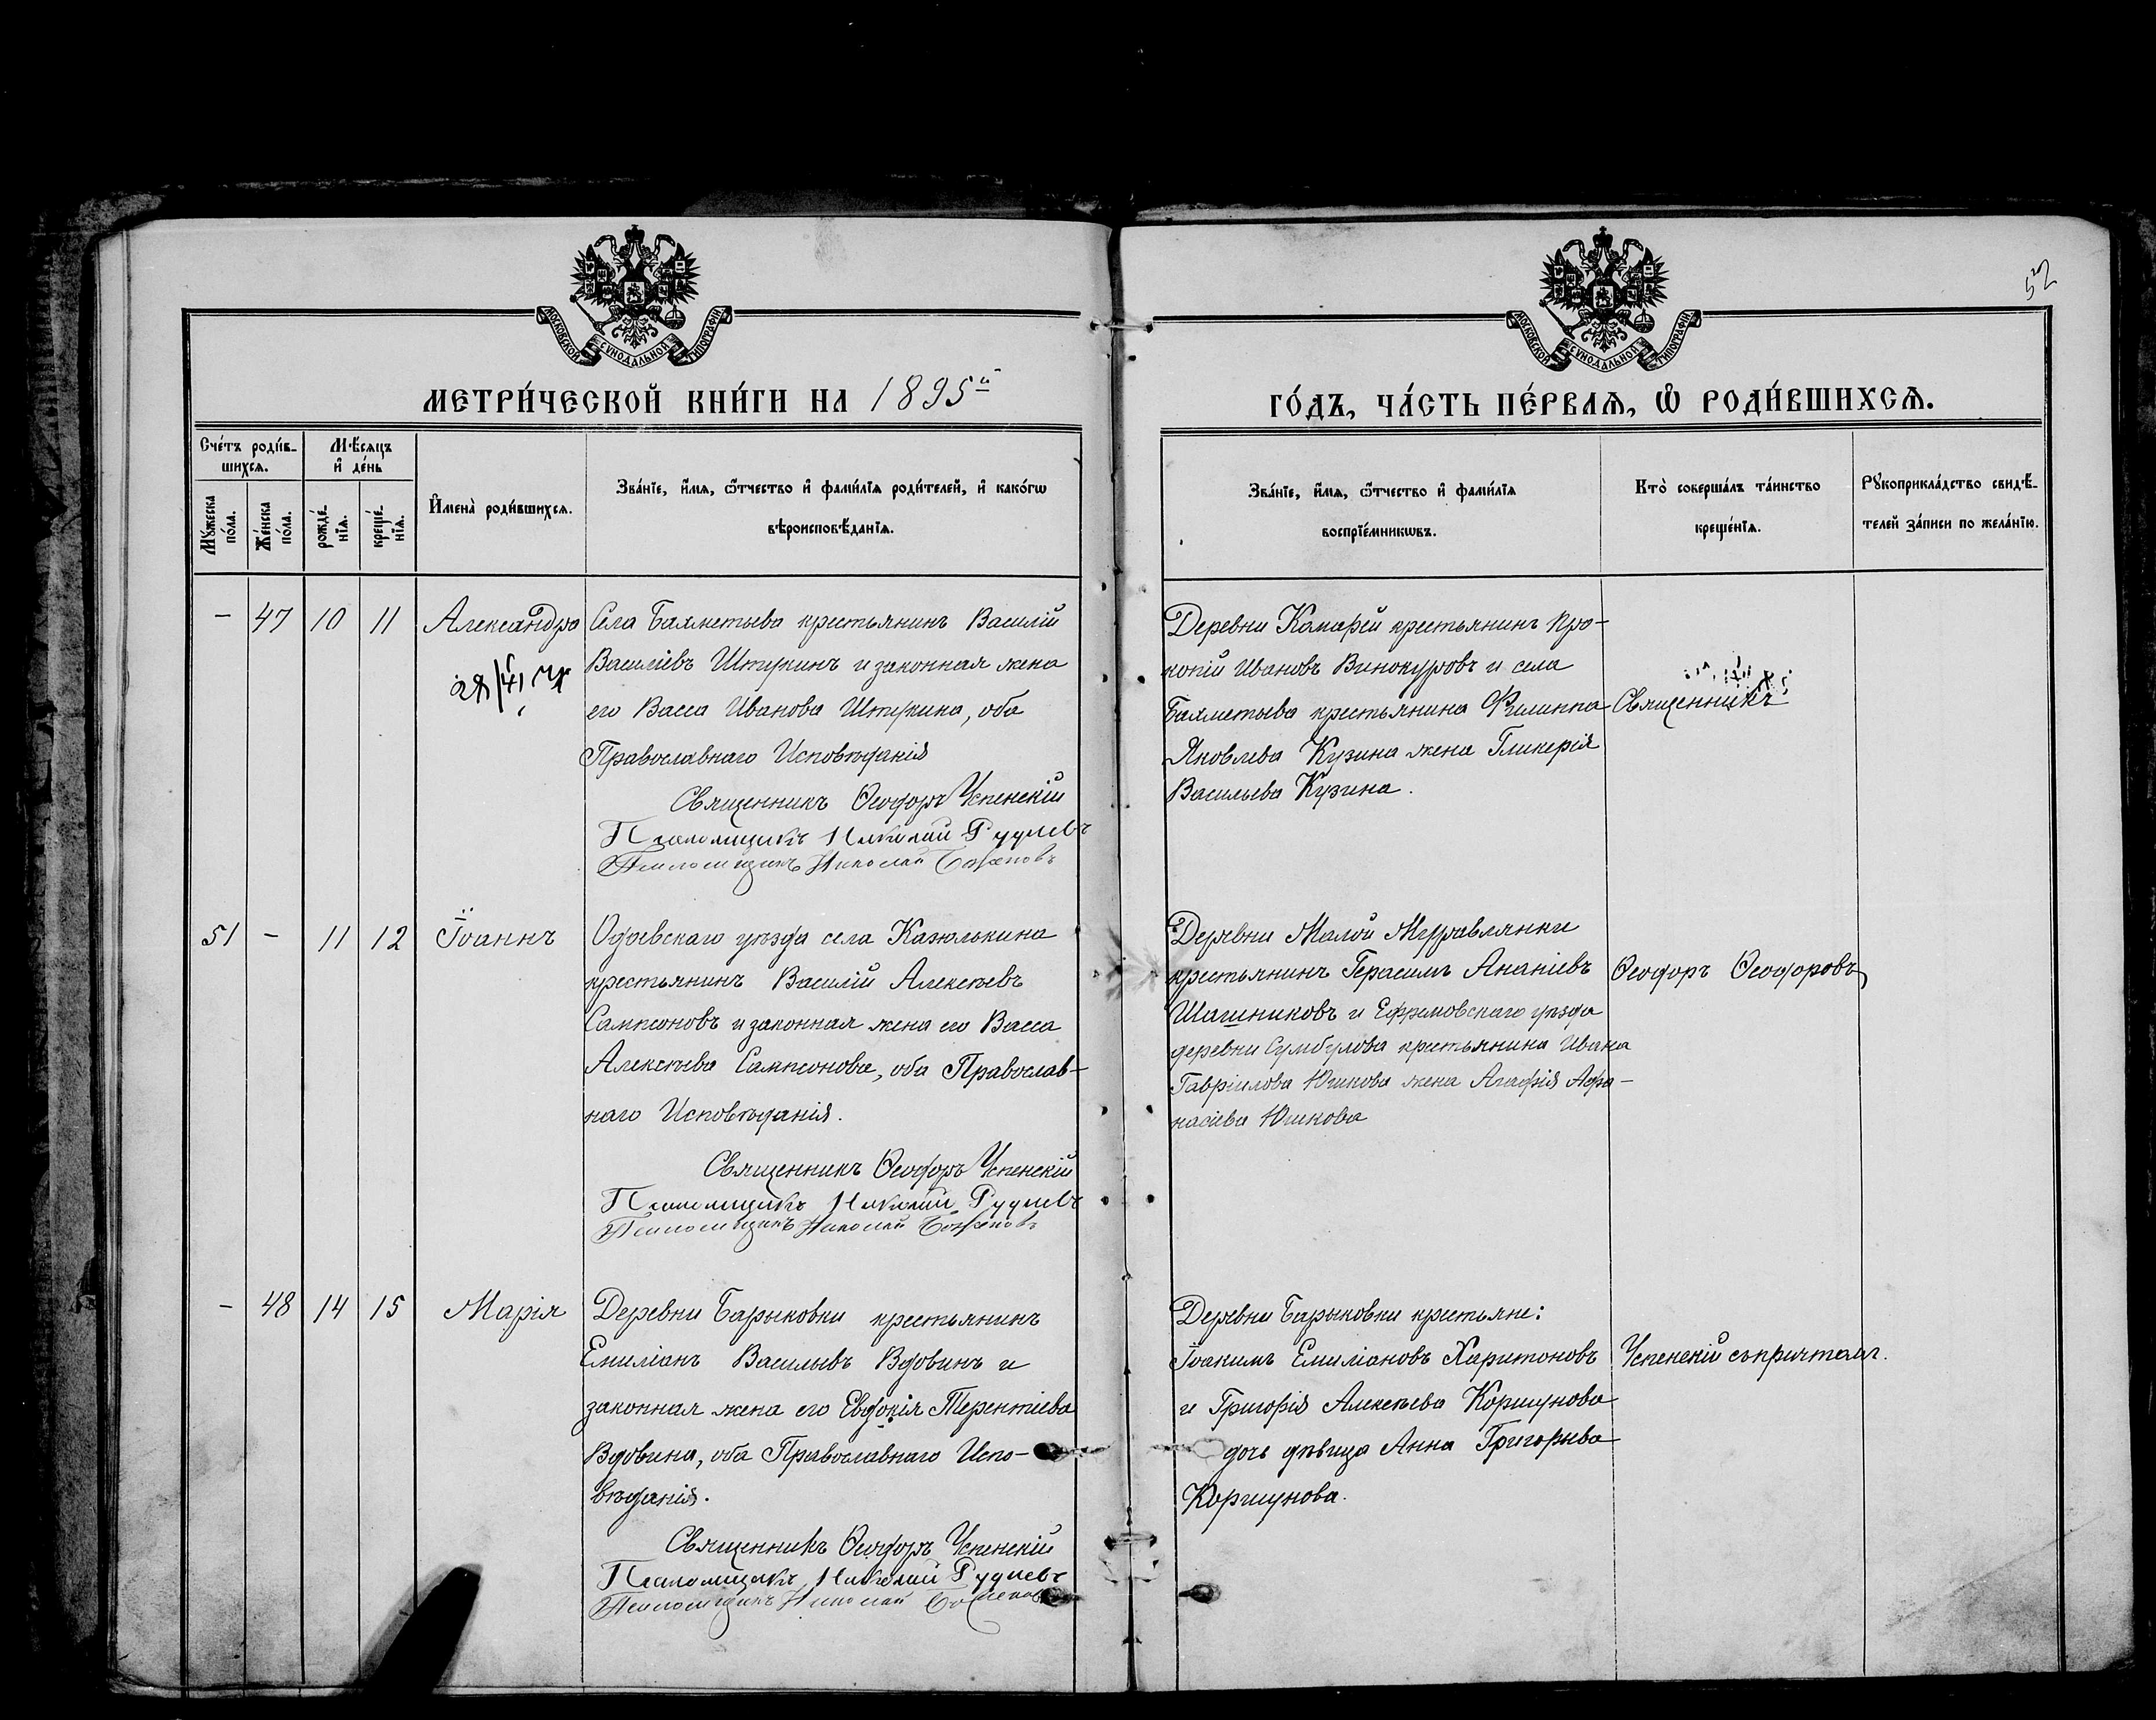 52
МОСКОВСКОЙ СѴНОДАЛЬНОЙ ТИПОГРАФІИ
МОСКОВСКОЙ СѴНОДАЛЬНОЙ ТИПОГРАФІИ
МЕТРИ́ЧЕСКОЙ КНИ́ГИ НА 1895й
ГО́ДЪ, ЧА́СТЬ ПЕ́РВАѦ, Ѡ҆ РОДИ́ВШИХСѦ.
Сче́тъ роди́в-
шихсѧ.
Мѣ́сѧцъ
и҆ де́нь
Мꙋ́жеска
по́ла.
Же́нска
по́ла.
рожде́-
нїѧ.
креще́-
нїѧ.
И҆мена̀ роди́вшихсѧ.
Зва́нїе, и҆́мѧ, ѻ҆́тчество и҆ фами́лїѧ роди́телей, и҆ како́гѡ
вѣроисповѣ́данїѧ.
Зва́нїе, и҆́мѧ, ѻ҆́тчество и҆ фами́лїѧ
воспрїе́мникѡвъ.
Кто̀ соверша́лъ та́инство
креще́нїѧ.
Рꙋкоприкла́дство свидѣ́-
телей за́писи по жела́нїю.
– 47 10 11 Александра
Села Бахметьева крестьянинъ Василій
Василіевъ Штукинъ и законная жена
его Васса Иванова Штукина, оба
Православнаго Исповѣданія
Священникъ Ѳеодоръ Успенскій
Псаломщикъ Николай Рудневъ
Псаломщикъ Николай Боженовъ
Деревни Камарей крестьянинъ Про-
копій Ивановъ Винокуровъ и села
Бахметьева крестьянина Филиппа
Яковлева Кузина жена Гликерія
Васильева Кузина.
Священникъ
51 – 11 12 Іоаннъ
Одоевскаго уѣзда села Казюлькина
крестьянинъ Василій Алексѣевъ
Сампсоновъ и законная жена его Васса
Алексѣева Сампсонова, оба Православ-
наго Исповѣданія.
Священникъ Ѳеодоръ Успенскій
Псаломщикъ Николай Рудневъ
Псаломщикъ Николай Боженовъ
Деревни Малой Муравлянки
крестьянинъ Герасимъ Ананіевъ
Шашниковъ и Ефремовскаго уѣзда
деревни Сумбулова крестьянина Ивана
Гавріилова Юшкова жена Агафія Афа-
насіева Юшкова
Ѳеодоръ Ѳеодоровъ
– 48 14 15 Марія
Деревни Барыковки крестьянинъ
Емиліанъ Васильевъ Вдовинъ и
законная жена его Евдокія Терентіева
Вдовина, оба Православнаго Испо-
вѣданія.
Священникъ Ѳеодоръ Успенскій
Псаломщикъ Николай Рудневъ
Псаломщикъ Николай Боженовъ
Деревни Барыковки крестьяне:
Іоакимъ Емиліановъ Харитоновъ
и Григорія Алексѣева Коршунова
дочь дѣвица Анна Григорьева
Коршунова.
Успенскій съ причтомъ.